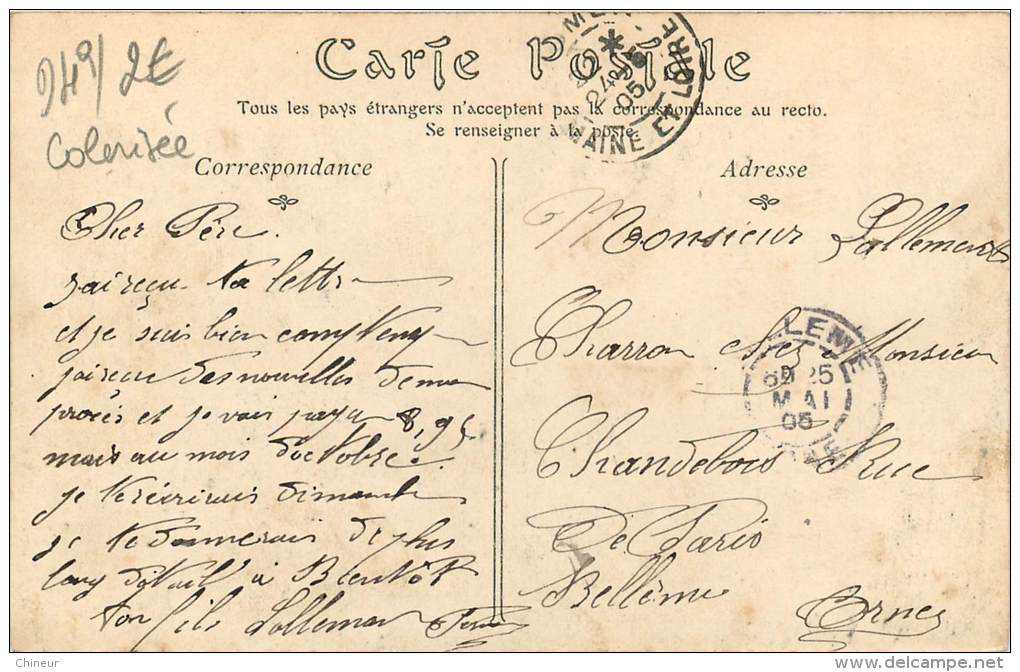 949/ 2€
Colorisée
Carte Postale
Tous les pays étrangers n'acceptent pas la correspondance au recto.
Se renseigner à la poste
MAINE ET LOIRE
24
05
Correspondance
Cher Père.
jai reçu ta lettre
et je suis bien
jai reçu des nouvelles de mon
procès et je vais paya 8,95
mais au mois doctobre.
je técrirais dimanche
je te donnerais de plus
long détail à Bientôt
ton fils Lallemen
Adresse
Monsieur Lallement
Charron chez Monsieur
Chandebois Rue
De Paris
Bellême Orne
LEME
8D 25
MAI
05
Chineur
delcampe.net